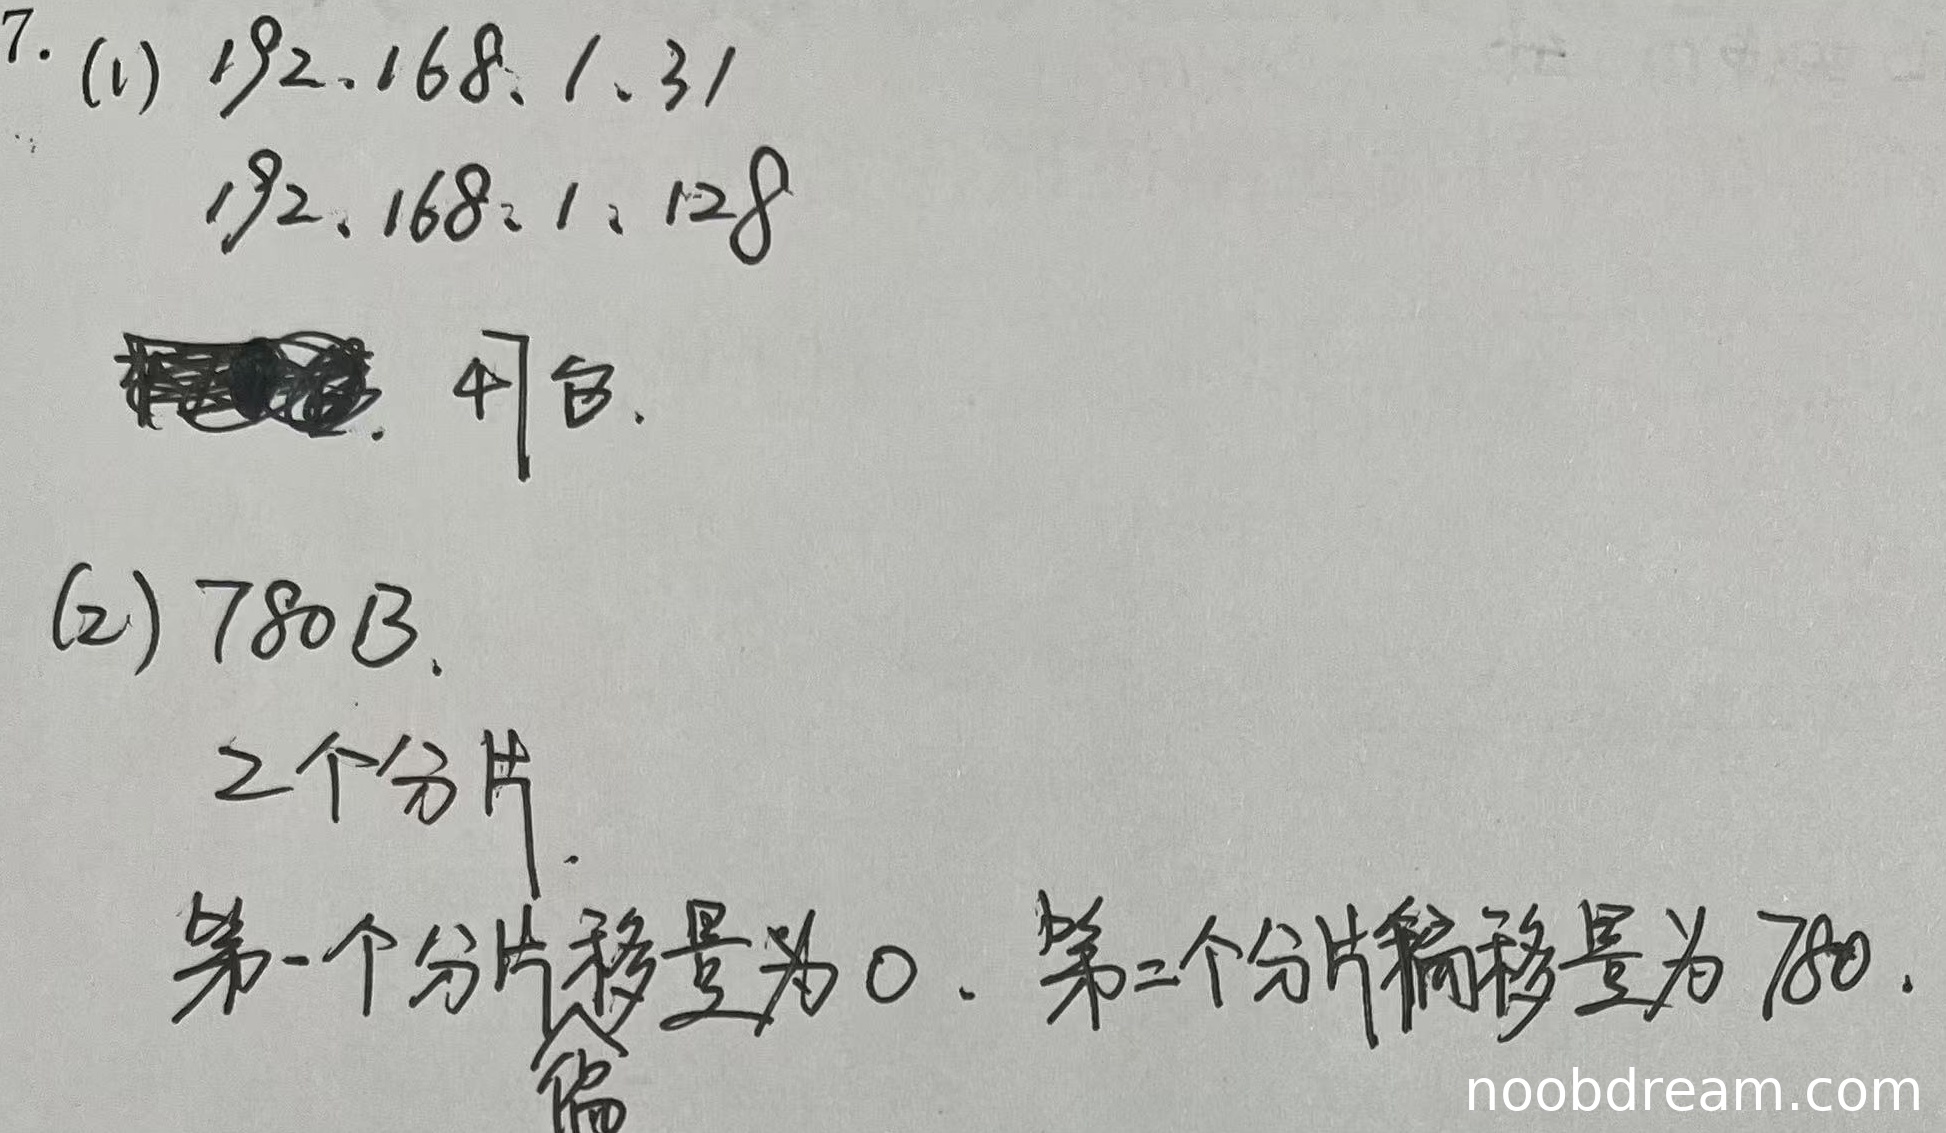 7. (1) 192.168.1.31
192.168.1.128
(2) 780B.
2个分片.
第一个分片偏移量为0. 第二个分片偏移量为780.
noobdream.com